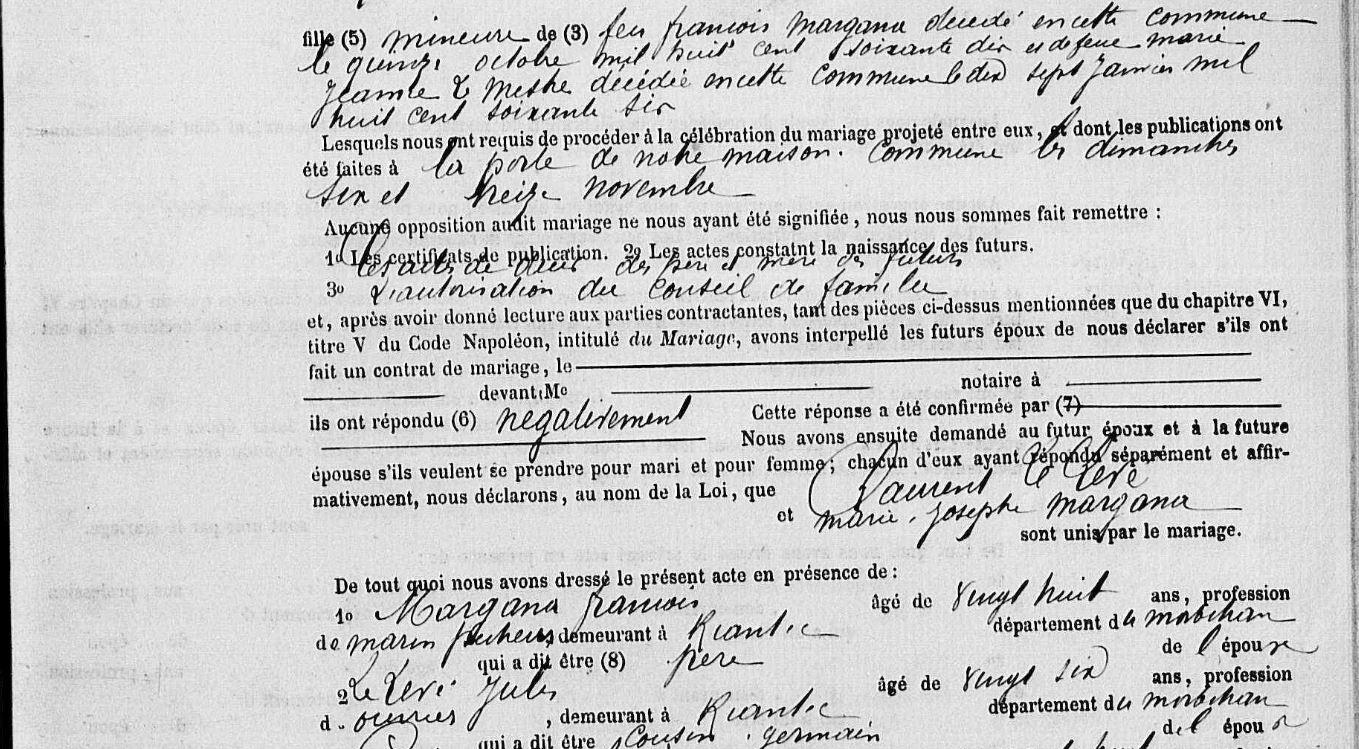 fille (5) mineure de (3) feu francois Margana decedé en cette commune
le quinze octobre mil huit cent soixante dix et de feue marie
Jeanne Le Meshe décédée en cette commune le dix sept Janvier mil
huit cent soixante six
Lesquels nous ont requis de procéder à la célébration du mariage projeté entre eux, et dont les publications ont
été faites à la porte de notre maison commune les dimanches
six et treize novembre
Aucune opposition audit mariage ne nous ayant été signifiée, nous nous sommes fait remettre :
1o Les certificats de publication. 2o Les actes constatnt la naissance des futurs.
Les actes de décès des père et mère des futurs
3o L'autorisation du Conseil de famille
et, après avoir donné lecture aux parties contractantes, tant des pièces ci-dessus mentionnées que du chapitre VI,
titre V du Code Napoléon, intitulé du Mariage, avons interpellé les futurs époux de nous déclarer s'ils ont
fait un contrat de mariage, le
devant Me notaire à
ils ont répondu (6) negativement Cette réponse a été confirmée par (7)
Nous avons ensuite demandé au futur époux et à la future
épouse s'ils veulent se prendre pour mari et pour femme; chacun d'eux ayant répondu séparément et affir-
mativement, nous déclarons, au nom de la Loi, que Laurent Le Levé
et marie Josephe Margana
sont unis par le mariage.
De tout quoi nous avons dressé le présent acte en présence de :
1o Margana francois âgé de vingt huit ans, profession
de marin pecheur, demeurant à Riantec département du morbihan
qui a dit être (8) frère de l'épouse
2 Le Levé Jules âgé de vingt six ans, profession
d. ouvrier, demeurant à Riantec département du morbihan
qui a dit être Cousin germain de l'épou